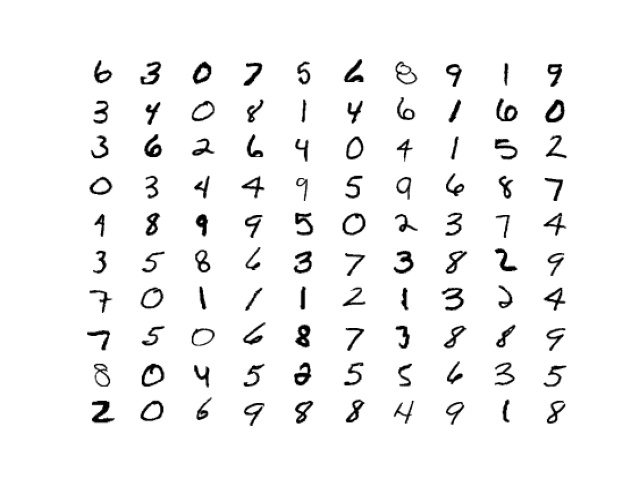 6 3 0 7 5 6 8 9 1 9
3 4 0 8 1 4 6 1 6 0
3 6 2 6 4 0 4 1 5 2
0 3 4 4 9 5 9 6 8 7
9 8 9 9 5 0 2 3 7 4
3 5 8 6 3 7 3 8 2 9
7 0 1 1 1 2 1 3 2 4
7 5 0 6 8 7 3 8 8 9
8 0 4 5 2 5 5 6 3 5
2 0 6 9 8 8 4 9 1 8